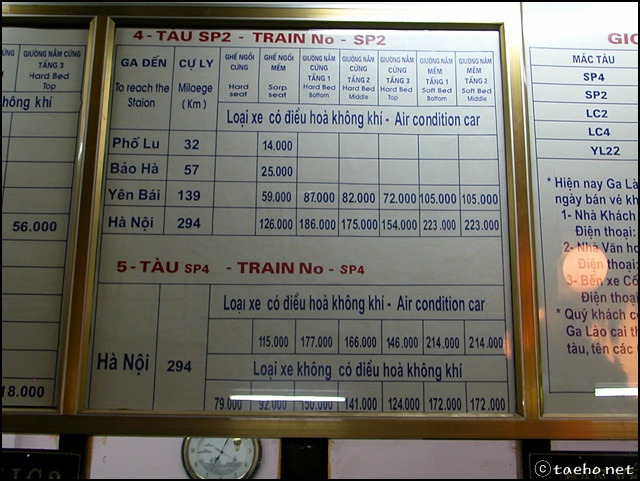 GIƯỜNG NẰM CỨNG
TẦNG 3
Hard Bed
Top
không khí
56.000
18.000
4 - TÀU SP2 - TRAIN No - SP2
GA ĐẾN
To reach the
Staion
CỰ LY
Milaege
( Km )
GHẾ NGỒI
CỨNG
Hard
seat
GHẾ NGỒI
MỀM
Sorp
seat
GIƯỜNG NẰM
CỨNG
TẦNG 1
Hard Bed
Bottom
GIƯỜNG NẰM
CỨNG
TẦNG 2
Hard Bed
Middle
GIƯỜNG NẰM
CỨNG
TẦNG 3
Hard Bed
Top
GIƯỜNG NẰM
MỀM
TẦNG 1
Soft Bed
Bottom
GIƯỜNG NẰM
MỀM
TẦNG 2
Soft Bed
Middle
Loại xe có điều hoà không khí - Air condition car
Phố Lu 32 14.000
Bảo Hà 57 25.000
Yên Bái 139 59.000 87.000 82.000 72.000 105.000 105.000
Hà Nội 294 126.000 186.000 175.000 154.000 223.000 223.000
5 - TÀU SP4 - TRAIN No - SP4
Loại xe có điều hoà không khí - Air condition car
115.000 177.000 166.000 146.000 214.000 214.000
Hà Nội 294
Loại xe không có điều hoà không khí
79.000 92.000 150.000 141.000 124.000 172.000 172.000
GIỜ
MÁC TÀU
SP4
SP2
LC2
LC4
YL22
* Hiện nay Ga Lào
ngày bán vé
1- Nhà Khách
Điện thoại:
2- Nhà Văn
Điện thoại:
3- Bến xe
Điện thoại
* Quý khách có
Ga Lào cai
tàu, tên các
© taeho.net